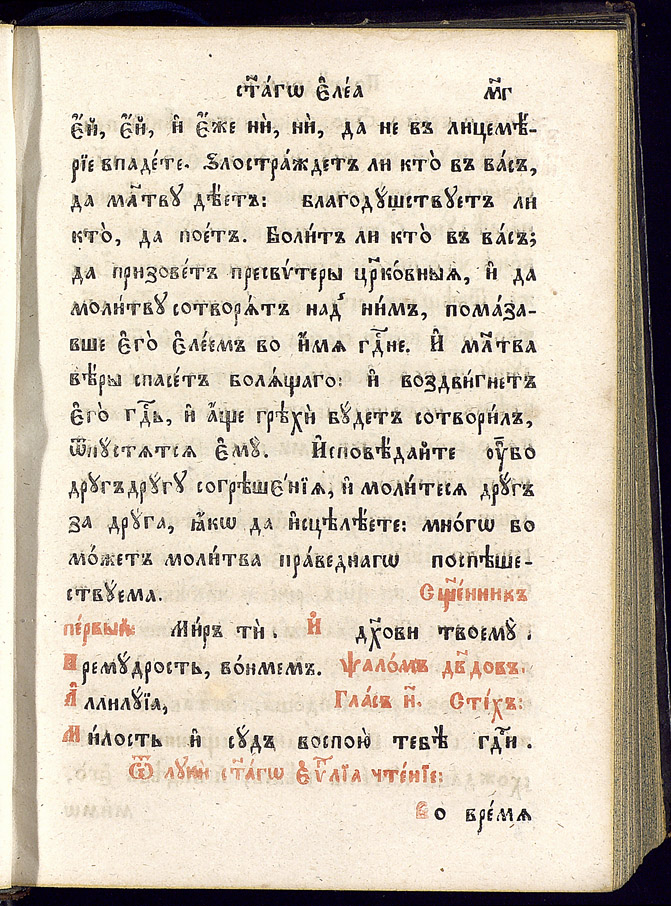 ст҃а́гѡ є҆ле́а м҃г
є҆́й, є҆́й, и҆ є҆́же нѝ, нѝ, да не въ лицемѣ́-
рїе впаде́те. Ѕлостра́ждетъ ли кто̀ въ ва́съ,
да мл҃твꙋ дѣ́етъ: благодꙋ́шствꙋетъ ли
кто̀, да пое́тъ. Боли́тъ ли кто̀ въ ва́съ;
да призове́тъ пресвѵ́теры цр҃ко́вныѧ, и҆ да
моли́твꙋ сотворѧ́тъ над̾ ни́мъ, пома́за-
вше є҆го̀ є҆ле́емъ во и҆́мѧ гдⷭ҇не. И҆ мл҃тва
вѣ́ры спасе́тъ болѧ́щаго: и҆ воздви́гнетъ
є҆го̀ гдⷭ҇ь, и҆ а҆́ще грѣхѝ бꙋ́детъ сотвори́лъ,
ѿпꙋ́стѧтсѧ є҆мꙋ̀. И҆сповѣ́дайте ᲂу҆́бо
дрꙋ́гъ дрꙋ́гꙋ согрѣшє́нїѧ, и҆ моли́тесѧ дрꙋ́гъ
за дрꙋ́га, ꙗ҆́кѡ да и҆сцѣлѣ́ете: мно́гѡ бо
мо́жетъ моли́тва пра́веднагѡ поспѣше-
ствꙋ́ема. Сщ҃е́нникъ
пе́рвый: Ми́ръ тѝ. И҆ дꙋ́хови твоемꙋ̀.
Премꙋ́дрость, во́нмемъ. ѱало́мъ дв҃довъ.
А҆ллилꙋ́їа, Гла́съ н҃. Сті́хъ:
Ми́лость и҆ сꙋ́дъ воспою̀ тебѣ̀ гдⷭ҇и.
Ѿ лꙋкѝ ст҃а́гѡ є҆ѵⷢ҇лїа чте́нїе:
Во вре́мѧ